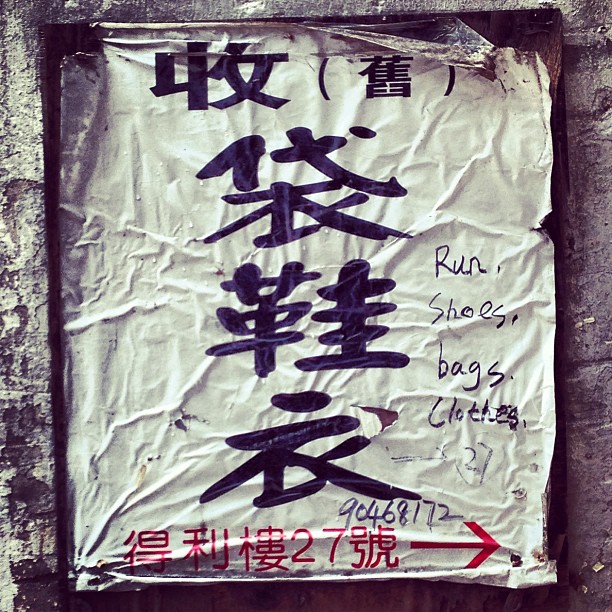 收(舊)
袋
鞋
衣
Run.
Shoes.
bags.
Clothes.
27
90468172
得利樓27號